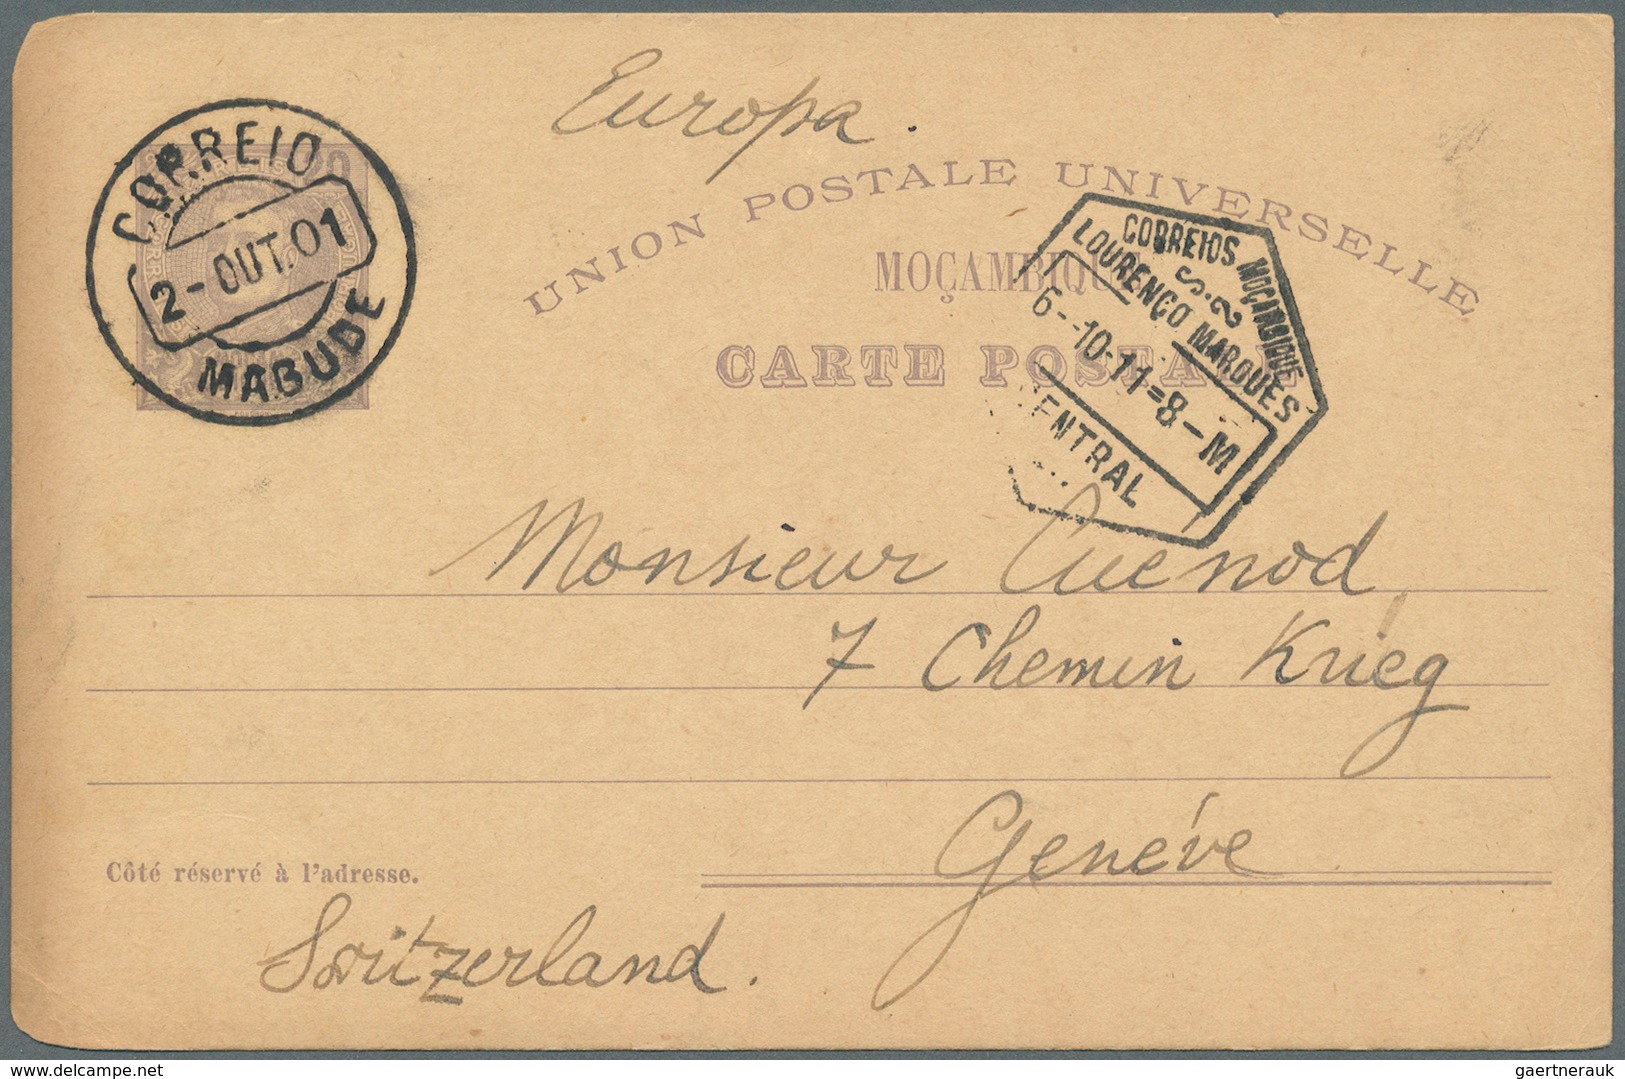 Europa.
UNION POSTALE UNIVERSELLE
MOÇAMBIQUE
CARTE POSTALE
CORREIO
2-OUT.01
MABUDE
CORREIOS MOÇAMBIQUE
S.2
LOURENÇO MARQUES
6--10-11=8-M
CENTRAL
Monsieur Cuenod
7 Chemin Krieg
Genéve
Côté réservé à l'adresse.
Switzerland.
www.delcampe.net
gaertnerauk